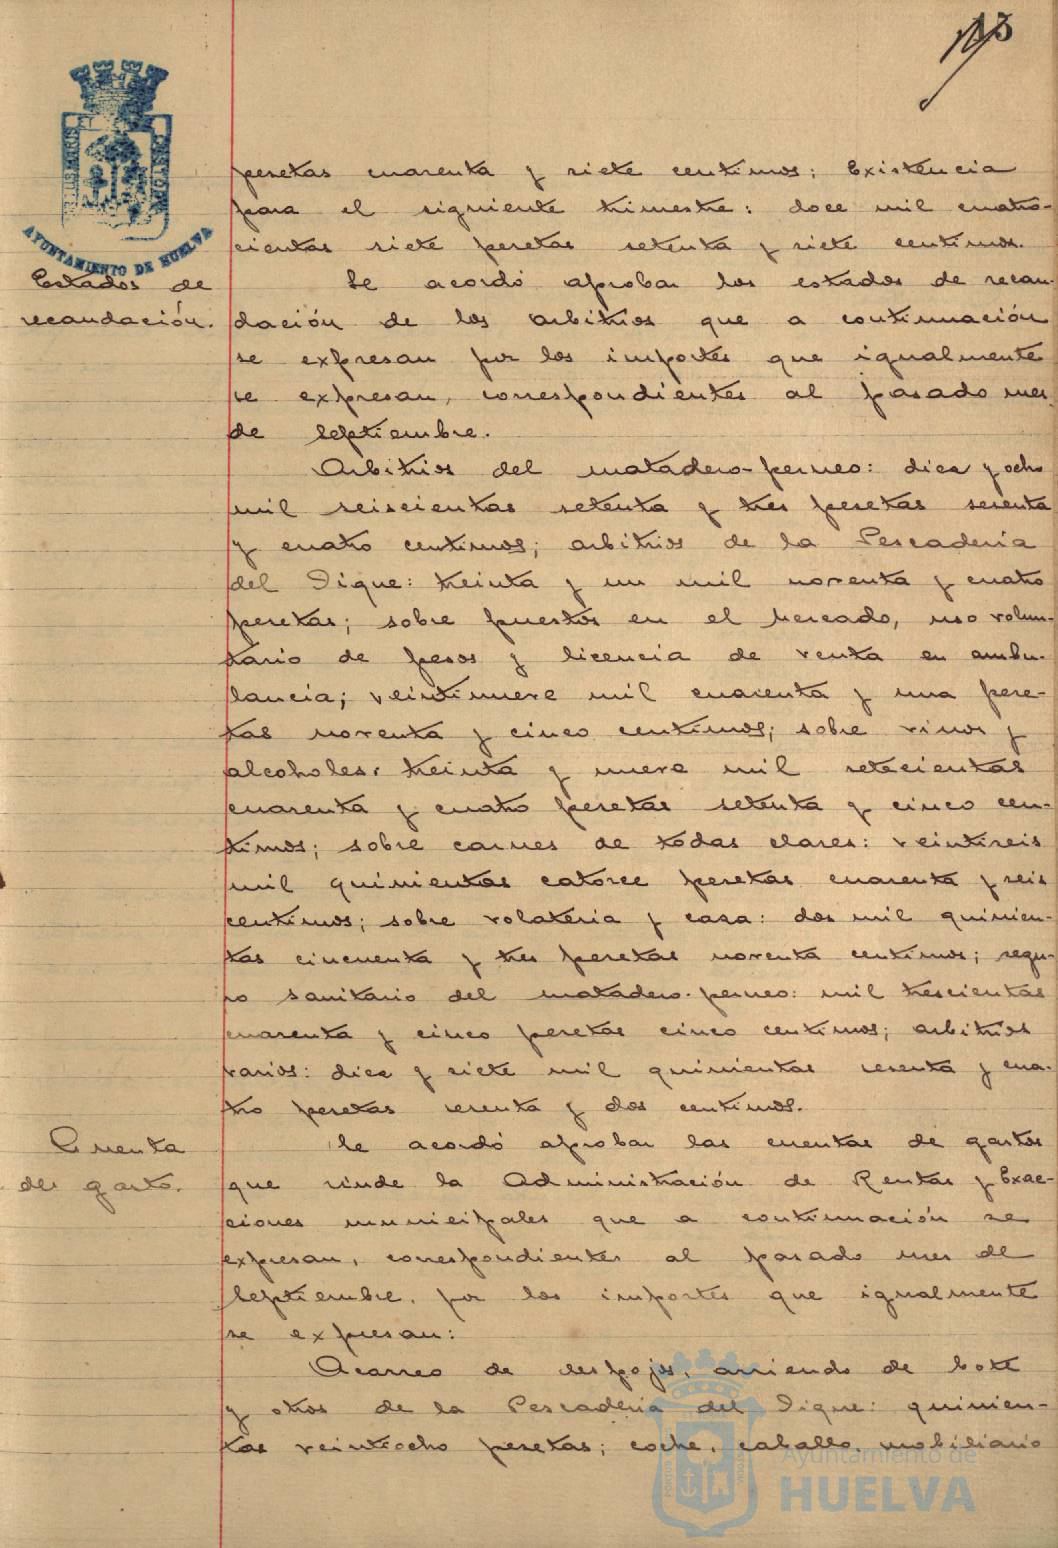 AYUNTAMIENTO DE HUELVA
pesetas cuarenta y siete centimos; Existencia
para el siguiente trimestre: doce mil cuatro-
cientas siete pesetas setenta y siete centimos.
Estados de
recaudación.
Se acordó aprobar los estados de recau-
dación de los arbitrios que a continuación
se expresan por los importes que igualmente
se expresan, correspondientes al pasado mes
de Septiembre.
Arbitrios del matadero-perneo: diez y ocho
mil seiscientas setenta y tres pesetas sesenta
y cuatro centimos; arbitrios de la Pescaderia
del Dique: treinta y un mil noventa y cuatro
pesetas; sobre puestos en el Mercado, uso volun-
tario de pesos y licencia de venta en ambu-
lancia; veintinueve mil cuarenta y una pese-
tas noventa y cinco centimos; sobre vinos y
alcoholes: treinta y nueve mil setecientas
cuarenta y cuatro pesetas setenta y cinco cen-
timos; sobre carnes de todas clases: veintiseis
mil quinientas catorce pesetas cuarenta y seis
centimos; sobre volateria y caza: dos mil quinien-
tas cincuenta y tres pesetas noventa centimos; segu-
ro sanitario del matadero-perneo: mil trescientas
cuarenta y cinco pesetas cinco centimos; arbitrios
varios: diez y siete mil quinientas sesenta y cua-
tro pesetas sesenta y dos centimos.
Cuenta
de gasto.
Se acordó aprobar las cuentas de gastos
que rinde la Administración de Rentas y Exac-
ciones municipales que a continuación se
expresan, correspondientes al pasado mes de
Septiembre, por los importes que igualmente
se expresan:
Acarreo de despojos, arriendo de bote
y otros de la Pescaderia del Dique: quinien-
tas veintiocho pesetas; coche, caballo, mobiliario
Ayuntamiento de
HUELVA